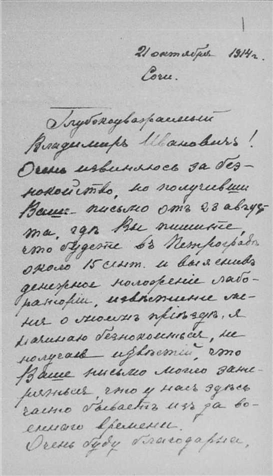 1
21 октября 1914 г.
Сочи.
Глубокоуважаемый
Владимиръ Ивановичъ!
Очень извиняюсь за без-
покойство, но получивши
Ваше письмо отъ 23 авгус-
та, гдѣ Вы пишите,
что будете въ Петроградѣ
около 15 сент. и выяснивъ
денежное положенiе лабо-
раторiи, извѣстите ме-
ня о моемъ прiѣздѣ, я
начинаю безпокоиться, не
получая извѣстiй, что
Ваше письмо могло зате-
ряться, что у насъ здѣсь
часто бываетъ из за во-
еннаго времени.
Очень буду благодарна,